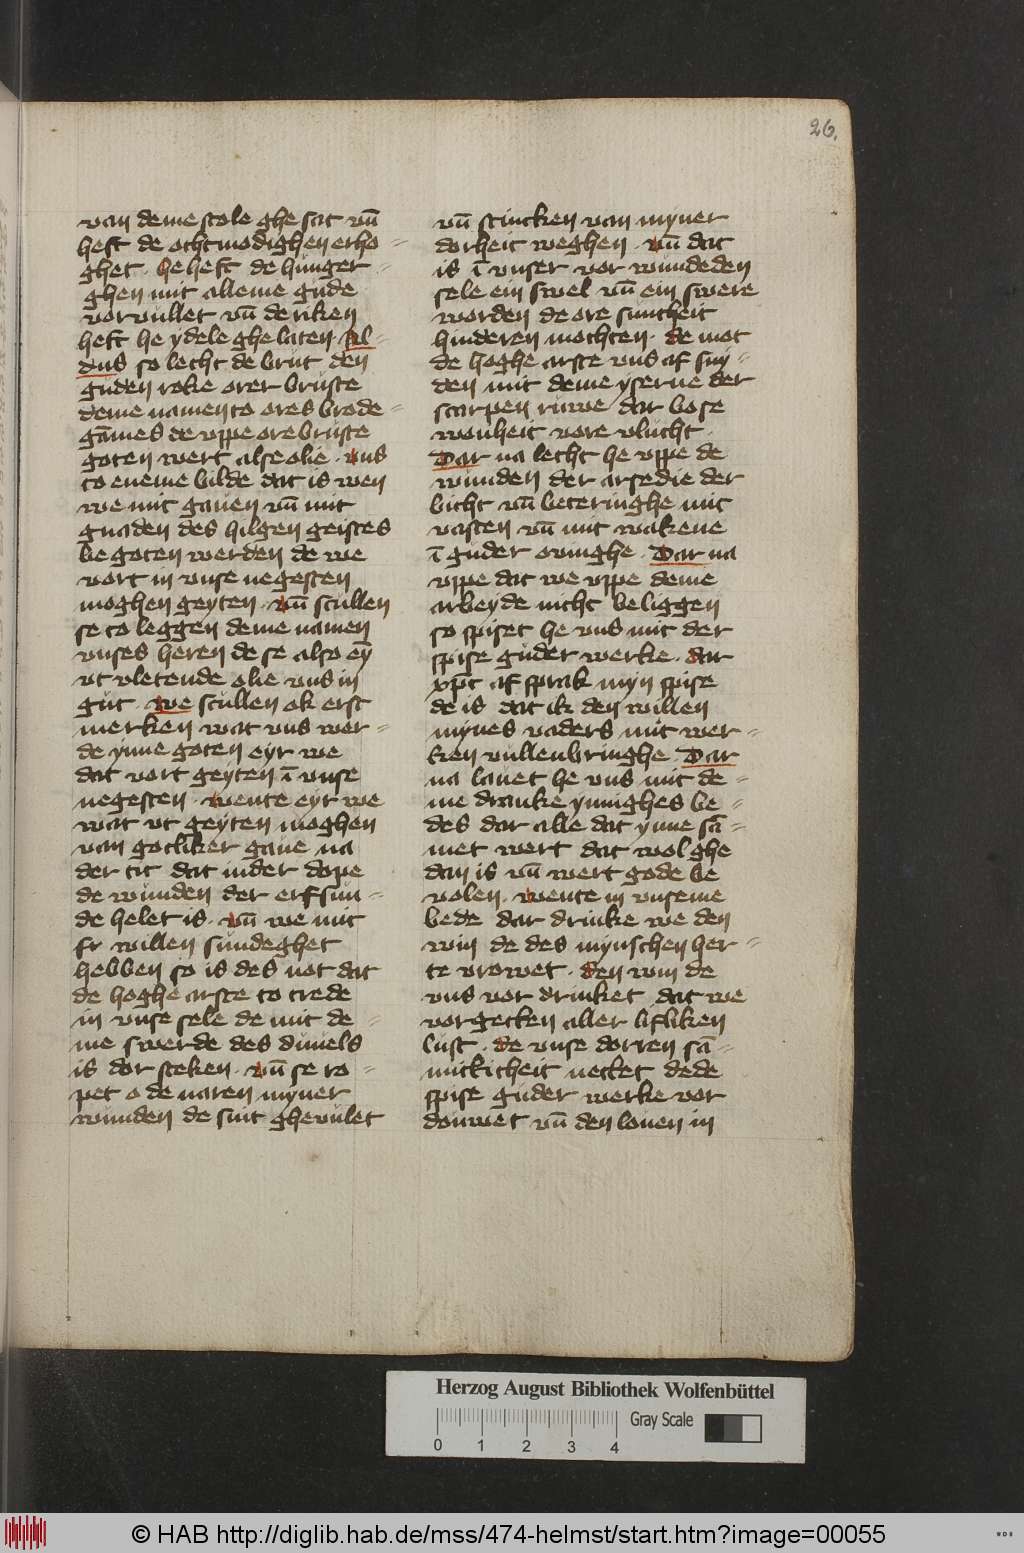 26.
van deme stole ghe sat vn̄
heft de othmodighen erho=
ghet. he heft de hunger=
ghen mit alleme gude
vorvullet vn̄ de riken
heft he ydele ghe laten. Al=
dus so lecht de brut den
guden roke over bruste
deme namen to ores brode=
gāmes de vppe ore bruste
goten wert alse olie. vns
to eneme bilde dat is wen
we mit gauen vn̄ mit
gnaden des hilgen geistes
be goten werden de we
vort in vnse negesten
moghen geyten. vn̄ scullen
se to leggen deme namen
vnses heren de se also eyn
vt vletende olie vns in
gut. we scullen ok erst
merken wat vns wer=
de ynne goten eyr we
dat vort geyten ī vnse
negesten. wente eyr we
wat vt geyten moghen
van gotliker gaue na
der tit dat in der dope
de wunden der erfsun=
de helet is. vn̄ we mit
fr willen sundeghet
hebben so is des not dat
de hoghe arste to trede
in vnse sele de mit de=
me swerde des duuels
is dor steken. vn̄ se ro=
pet o de naren myner
wunden de sint gheuulet
vn̄ stincken van myner
dorheit weghen. vn̄ dat
is ī vnser vor wundeden
sele ein swel vn̄ ein swere
worden de ore suntheit
hinderen mochten. de mot
de hoghe arste vns af sny=
den mit deme yserne der
scarpen ruwe dar bose
wonheit vore vlucht.
Dar na lecht he vppe de
wunden der arsedie der
bicht vn̄ beteringhe mit
vasten vn̄ mit wakene
ī guder ouinghe. Dar na
vppe dat we vppe deme
arbeyde nicht beliggen
so spiset he vns mit der
spise guder werke. dar
xp̄c af sprak myn spise
de is dat ik den willen
mynes vaders mit wer=
ken vullenbringhe. Dar
na lauet he vns mit de=
me dranke ynnighes be=
des dar alle dat ynne sā=
met wert dat wol ghe
dan is vn̄ wert gode be
volen. wente in vnseme
bede dar drinke we den
win de des mynschen her=
te vrowet. den win de
vns vor drinket dat we
vorgetten aller lifliken
lust. de vnse dorren sā=
mitticheit nettet de de
spise guder werke vor
douwet vn̄ den louen in
Herzog August Bibliothek Wolfenbüttel
0 1 2 3 4
Gray Scale
© HAB http://diglib.hab.de/mss/474-helmst/start.htm?image=00055